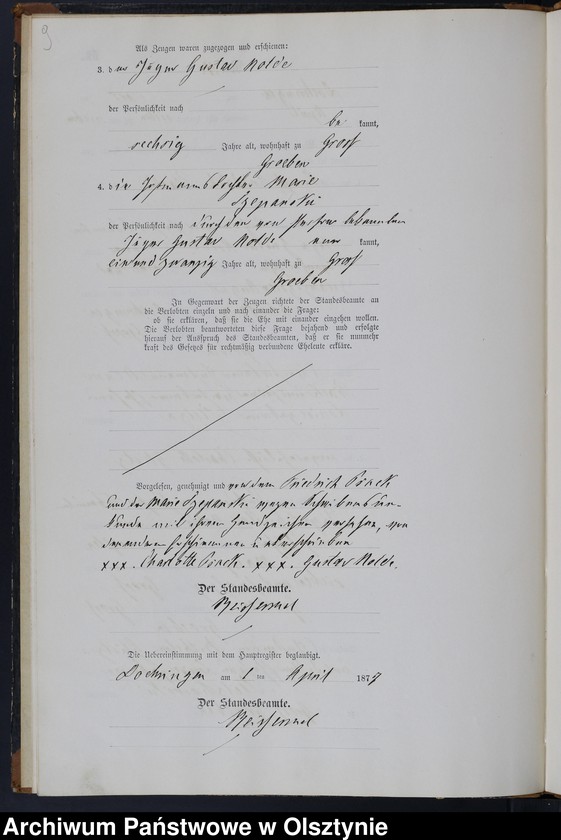 9
Als Zeugen waren zugezogen und erschienen:
3. der Jäger Gustav Nolde
der Persönlichkeit nach
be kannt,
sechzig Jahre alt, wohnhaft zu Gross
Groeben
4. die Marie
Szepanski
der Persönlichkeit nach durch den von Person bekannten
Jäger Gustav Nolde aner kannt,
einundzwanzig Jahre alt, wohnhaft zu Gross
Groeben
In Gegenwart der Zeugen richtete der Standesbeamte an
die Verlobten einzeln und nach einander die Frage:
ob sie erklären, daß sie die Ehe mit einander eingehen wollen.
Die Verlobten beantworteten diese Frage bejahend und erfolgte
hierauf der Ausspruch des Standesbeamten, daß er sie nunmehr
kraft des Gesetzes für rechtmäßig verbundene Eheleute erkläre.
Vorgelesen, genehmigt und von dem Friedrich
und der Marie Szepanski wegen Schreibensun-
kunde mit ihren Handzeichen versehen, von
den anderen Erschienenen unterschrieben
xxx. Charlotte xxx. Gustav Nolde.
Der Standesbeamte.
Die Uebereinstimmung mit dem Hauptregister beglaubigt.
Doehringen am 1 ten April 1877
Der Standesbeamte.
Archiwum Państwowe w Olsztynie